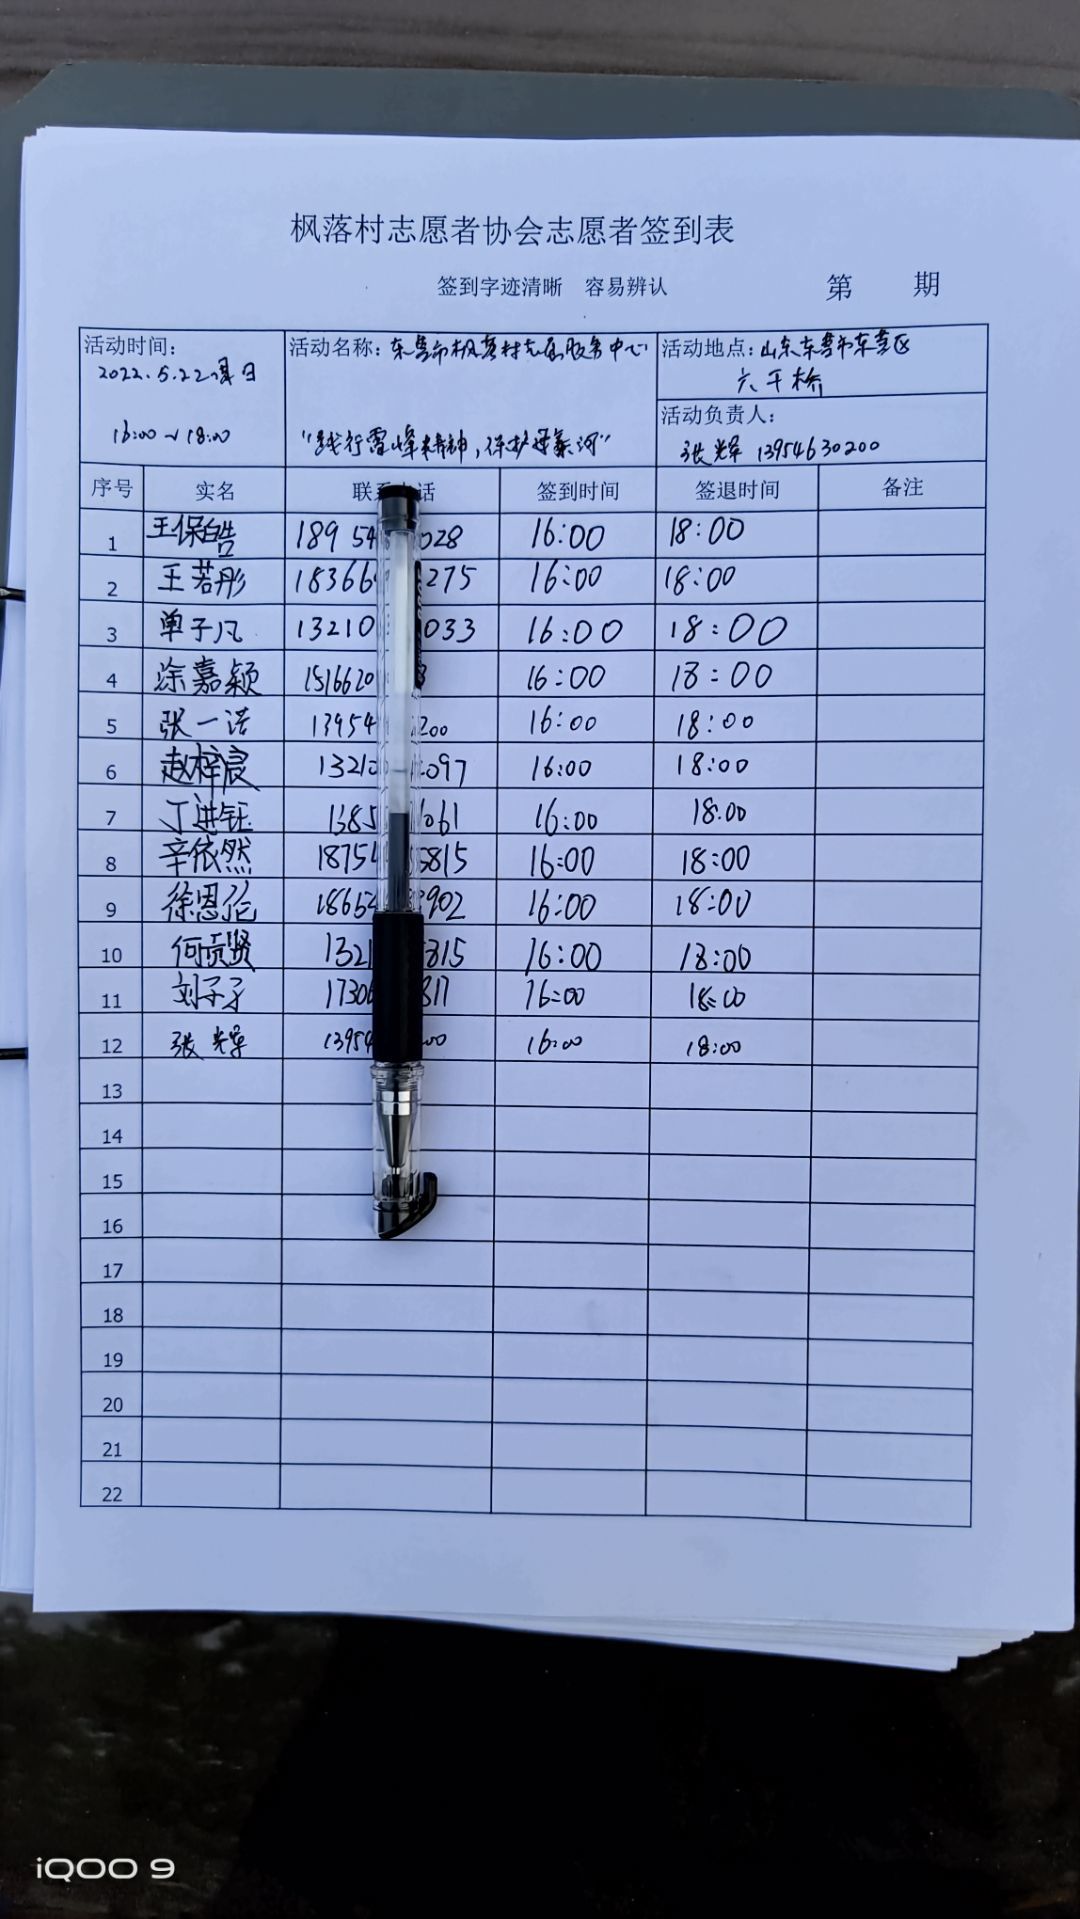 枫落村志愿者协会志愿者签到表
签到字迹清晰 容易辨认 第 期
活动时间: 2022.5.22 日
16:00~18:00
活动名称: 东营市枫落村志愿服务中心
"践行雷峰精神,保护母亲河"
活动地点: 山东东营市东营区
六干桥
活动负责人:
张 辉 13954630200
序号 实名 联 话 签到时间 签退时间 备注
1 王保皓 189 54 028 16:00 18:00
2 王若彤 18366 275 16:00 18:00
3 单子凡 13210 033 16:00 18:00
4 涂嘉颖 1516620 16:00 18:00
5 张一诺 13954 200 16:00 18:00
6 赵梓宸 13210 097 16:00 18:00
7 丁进钰 1385 061 16:00 18:00
8 辛依然 18754 5815 16:00 18:00
9 徐恩伦 1865 902 16:00 18:00
10 何贡贤 1321 815 16:00 18:00
11 刘子 1730 817 16:00 18:00
12 张 辉 13954 00 16:00 18:00
13
14
15
16
17
18
19
20
21
22
iQOO 9